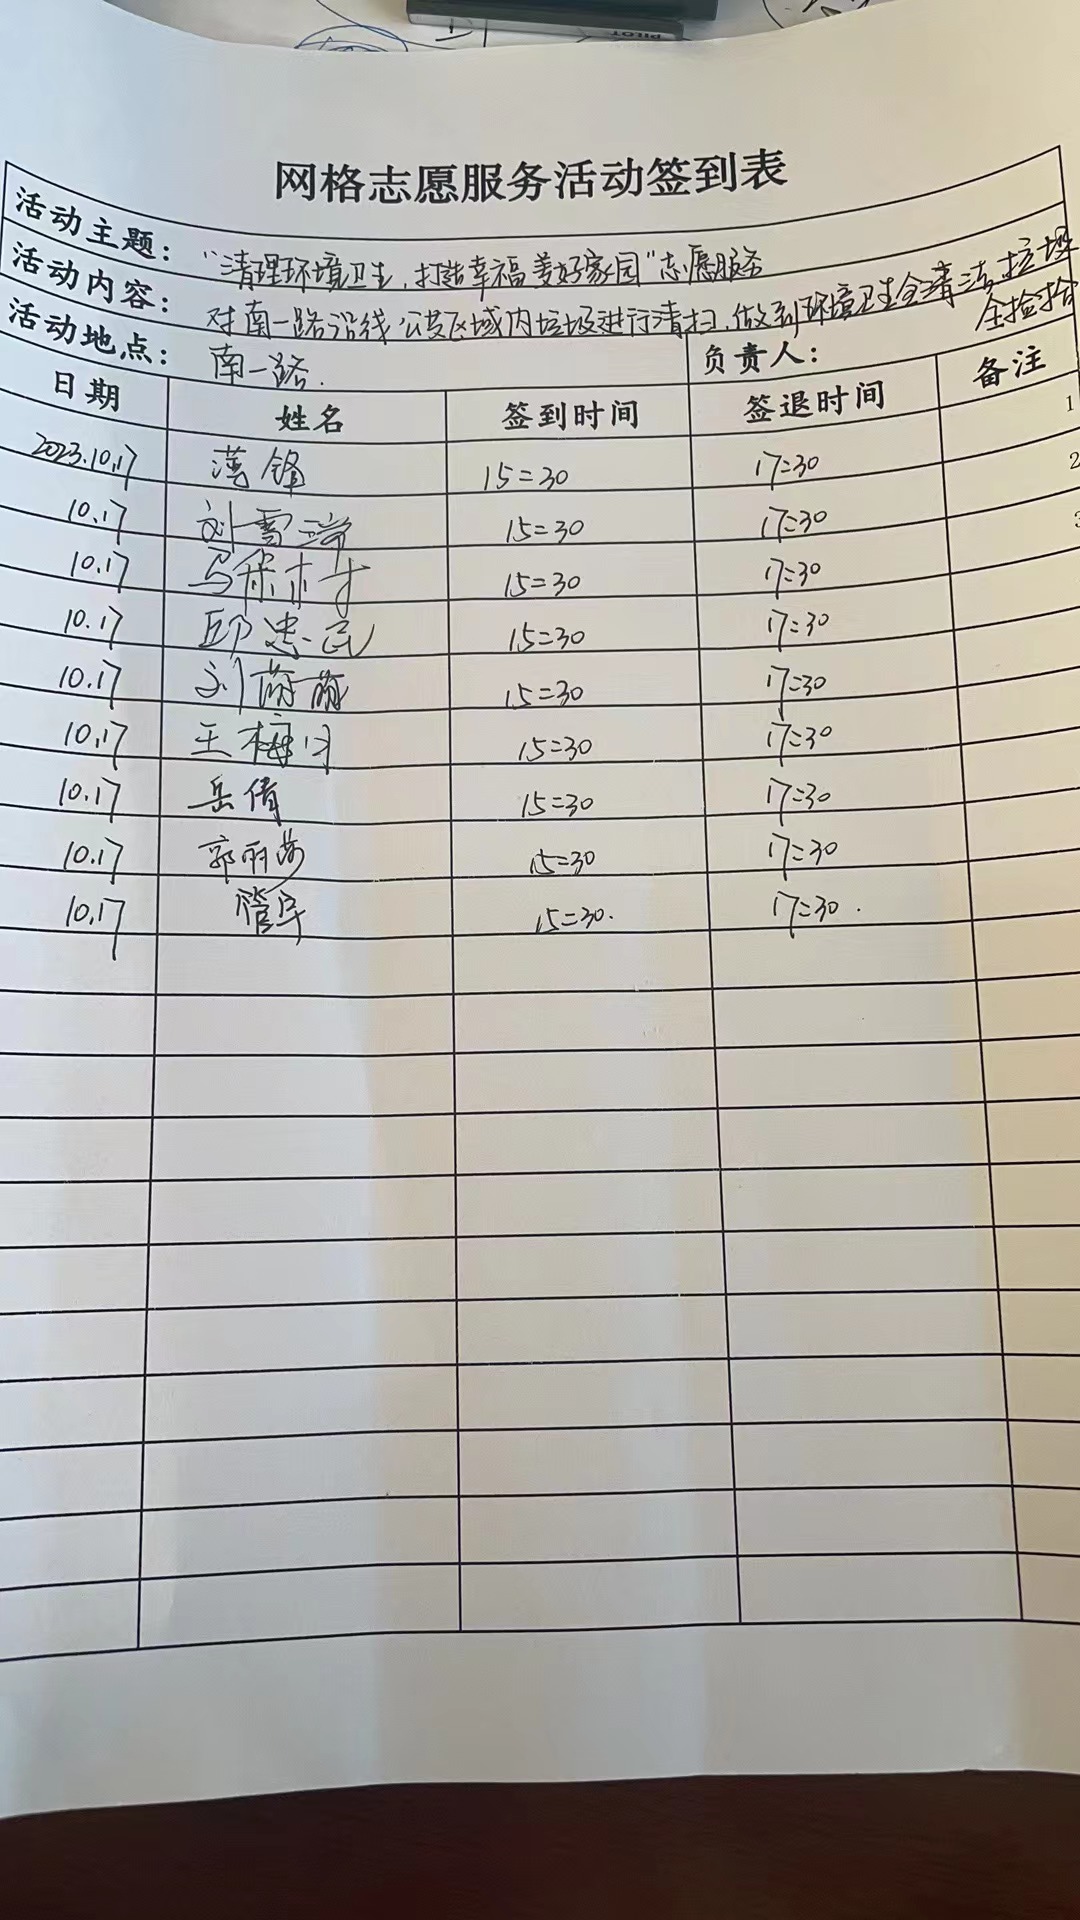 PILOT
网格志愿服务活动签到表
活动主题: "清理环境卫生,打造幸福美好家园"志愿服务
活动内容: 对南一路沿线公共区域内垃圾进行清扫,做到环境卫生全清洁,垃圾
全捡拾
活动地点: 南一路. 负责人:
日期 姓名 签到时间 签退时间 备注
1
2023.10.17 薄锋 15=30 17=30
2
10.17 刘雪瑞 15=30 17=30
10.17 15=30 17=30
10.17 邱忠民 15=30 17=30
10.17 刘萌萌 15=30 17=30
10.17 王梅 15=30 17=30
10.17 岳倩 15=30 17=30
10.17 郭丽莎 15=30 17=30
10.17 管 15=30. 17=30.